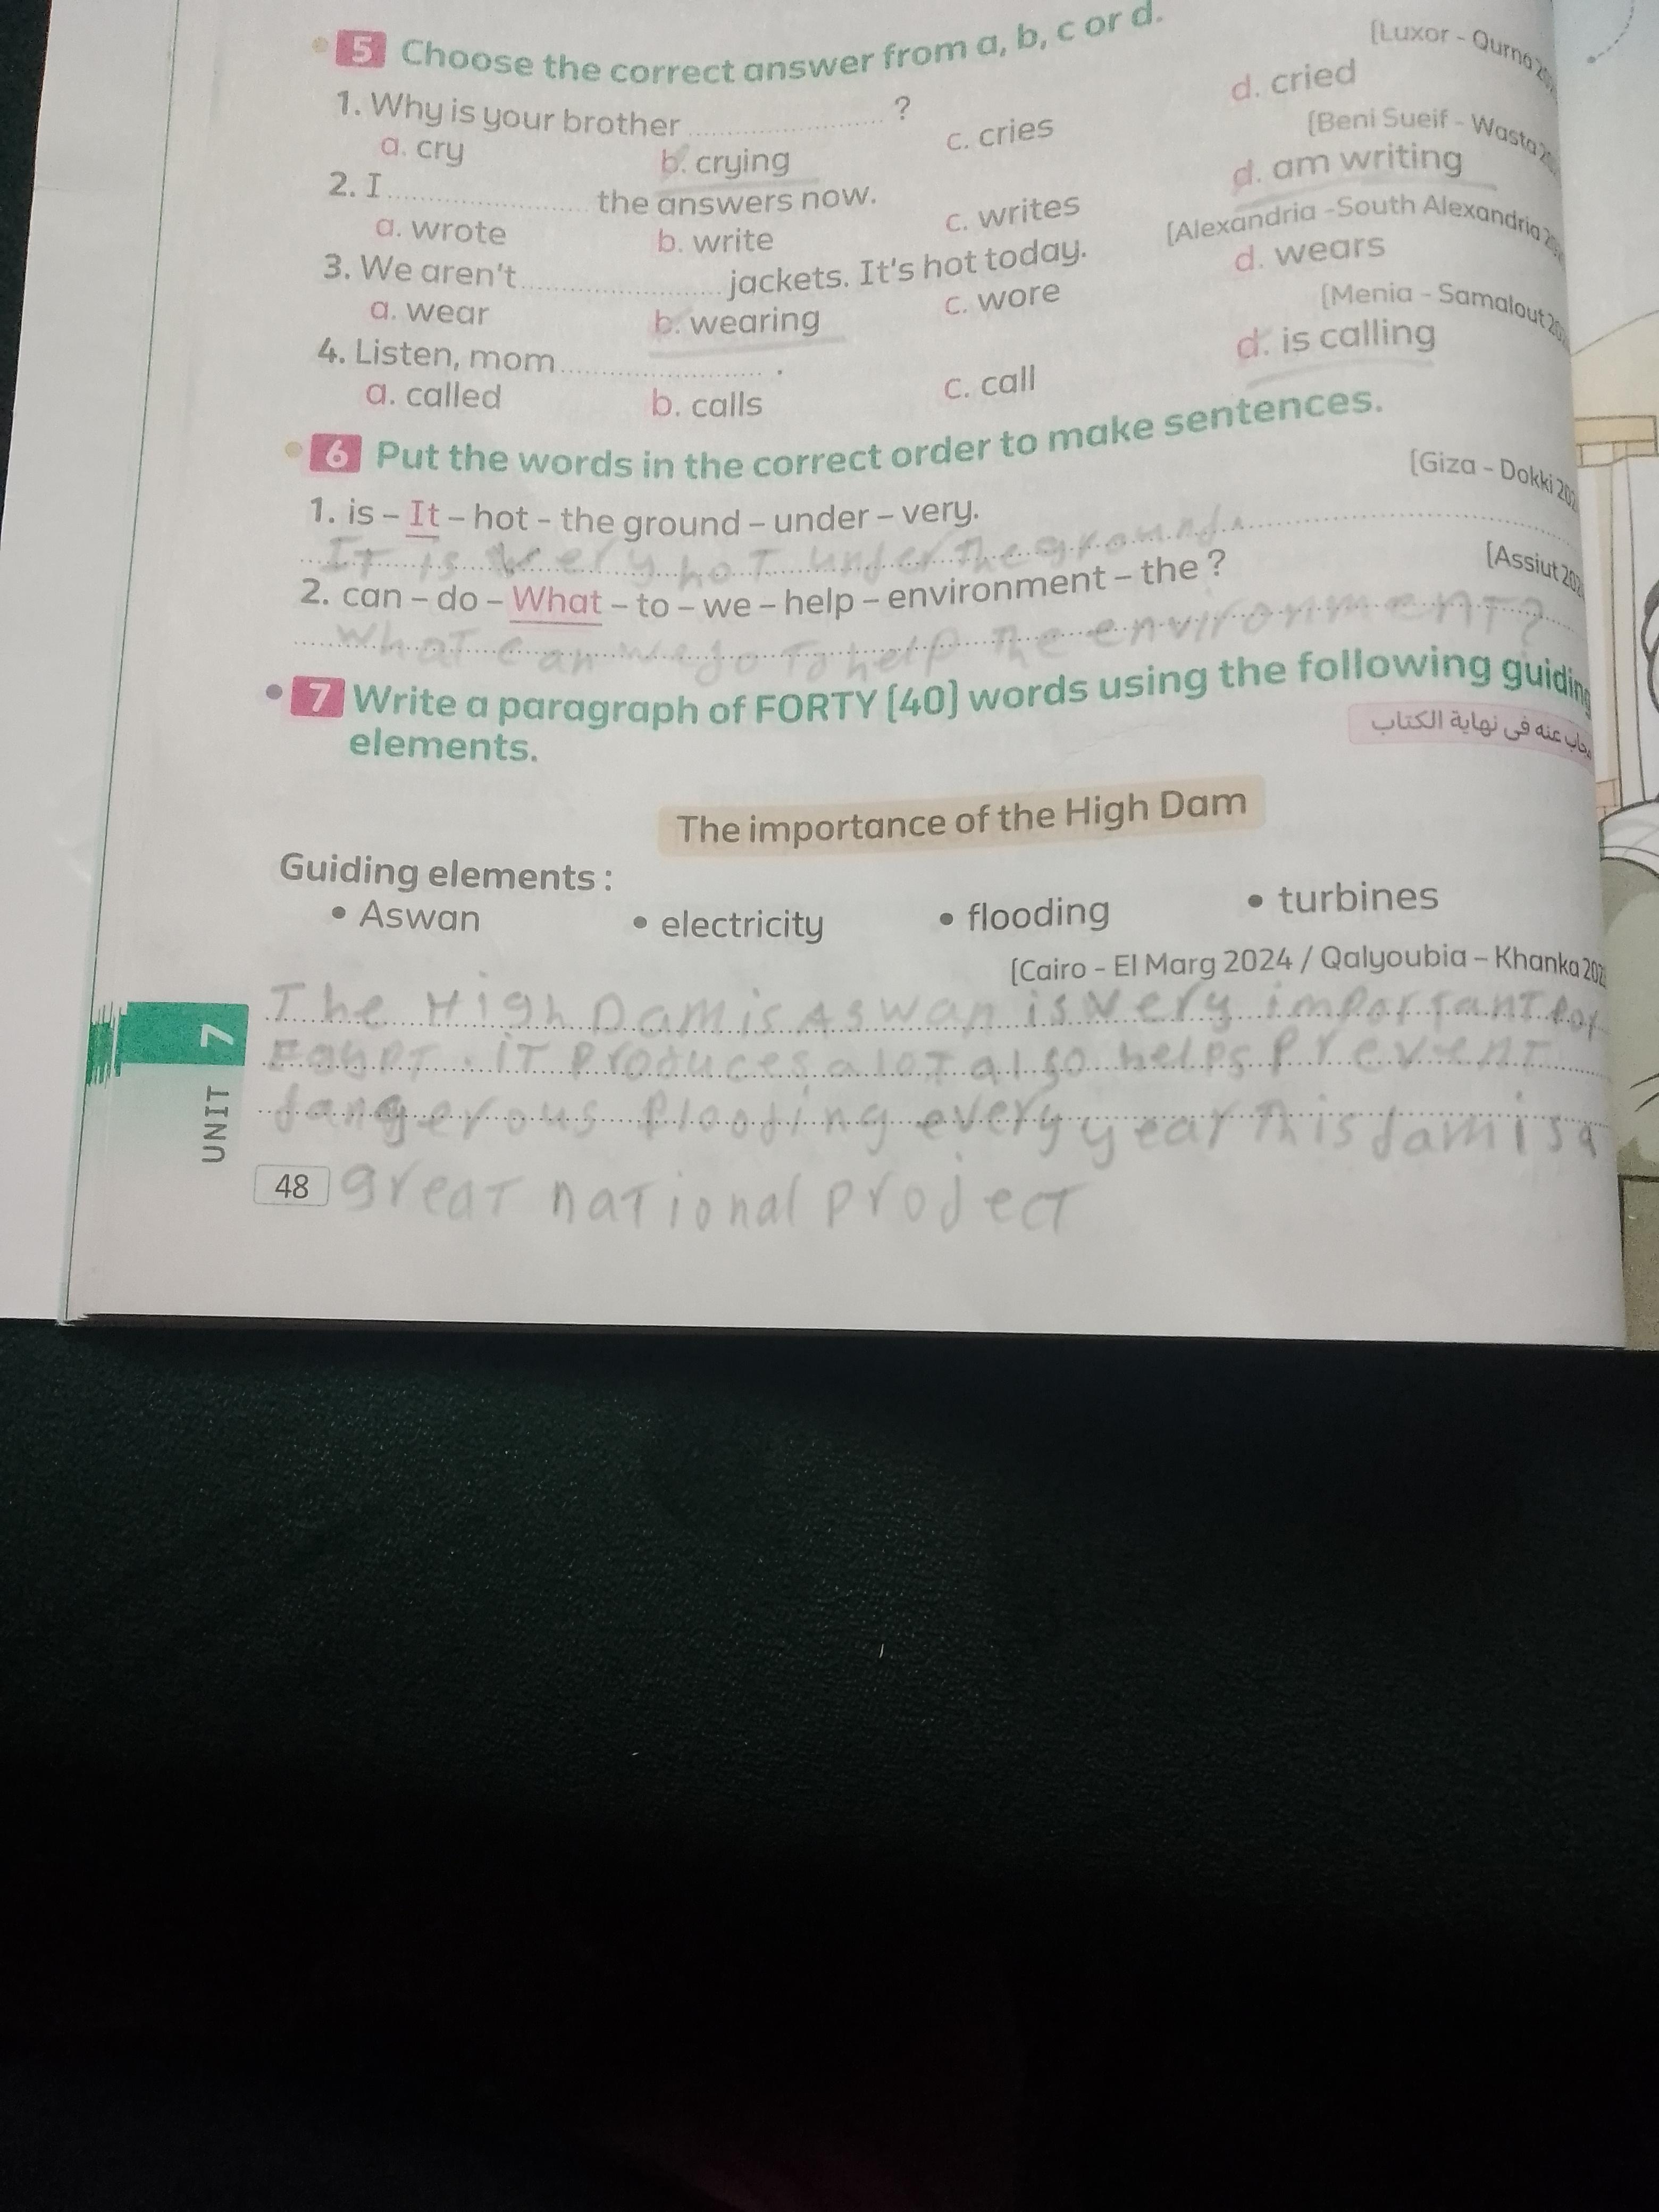 5 Choose the correct answer from a, b, c or d.
[Luxor - Qurna
1. Why is your brother .................... ?
a. cry b. crying c. cries d. cried
[Beni Sueif - Wasta
2. I .................... the answers now.
a. wrote b. write c. writes d. am writing
[Alexandria - South Alexandria
3. We aren't .................... jackets. It's hot today.
a. wear b. wearing c. wore d. wears
[Menia - Samalout
4. Listen, mom .................... .
a. called b. calls c. call d. is calling
6 Put the words in the correct order to make sentences.
[Giza - Dokki
1. is – It – hot - the ground – under – very.
It is very hot under the ground.
[Assiut
2. can – do – What – to – we – help – environment – the ?
What can we do To help The environment?
7 Write a paragraph of FORTY [40] words using the following guiding
elements.
مجاب عنه فى نهاية الكتاب
The importance of the High Dam
Guiding elements :
• Aswan • electricity • flooding • turbines
[Cairo - El Marg 2024 / Qalyoubia – Khanka
The High Dam is Aswan is very important for
Egypt. it produces a lot also helps prevent
dangerous flooding every year This dam is a
great national project
UNIT 7
48